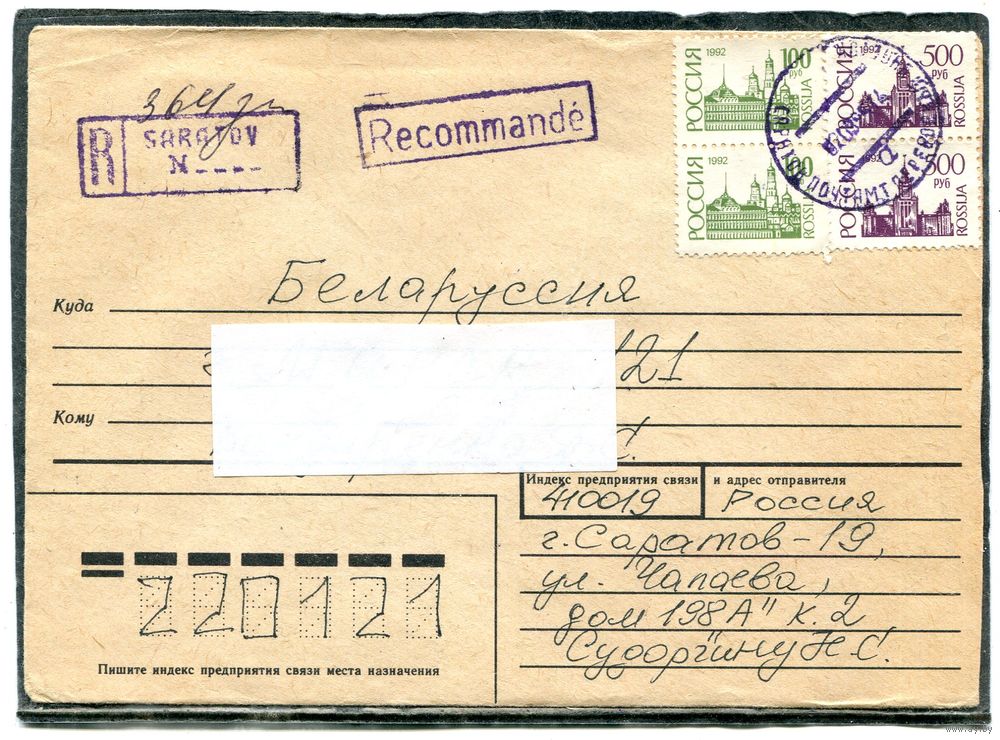 364
R SARATOV
N
Recommandé
РОССИЯ 1992 100 РУБ ROSSIJA
РОССИЯ 1992 500 РУБ ROSSIJA
РОССИЯ 1992 100 ROSSIJA
1992 500 РУБ ROSSIJA
Куда Беларуссия
121
Кому
С.
Индекс предприятия связи и адрес отправителя
410019 Россия
г. Саратов-19,
ул. Чапаева,
дом 198 А" к. 2
Сударгину Н С.
220121
Пишите индекс предприятия связи места назначения